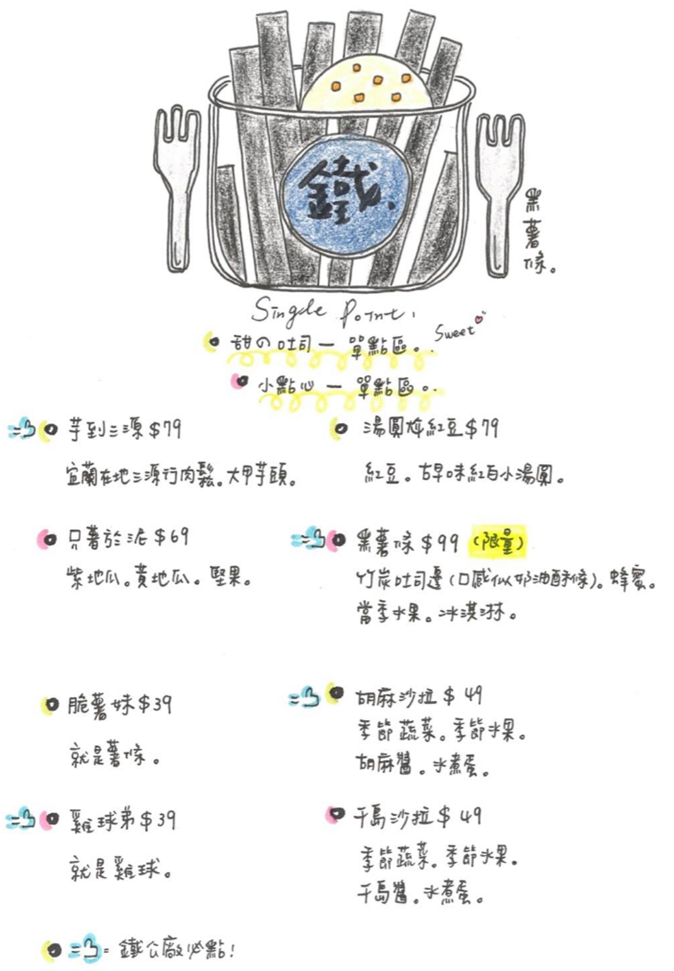 鐵
黑薯條。
Single Point.
Sweet
甜の吐司一單點區。
小點心一單點區。
芋到三源 $79
宜蘭在地三源行肉鬆。大甲芋頭。
湯圓尬紅豆 $79
紅豆。古早味紅白小湯圓。
只薯於泥 $69
紫地瓜。黃地瓜。堅果。
黑薯條 $99 (限量)
竹炭吐司邊(口感似奶油酥條)。蜂蜜。
當季水果。冰淇淋。
脆薯妹 $39
就是薯條。
胡麻沙拉 $49
季節蔬菜。季節水果。
胡麻醬。水煮蛋。
雞球弟 $39
就是雞球。
千島沙拉 $49
季節蔬菜。季節水果。
千島醬。水煮蛋。
= 鐵公廠必點!